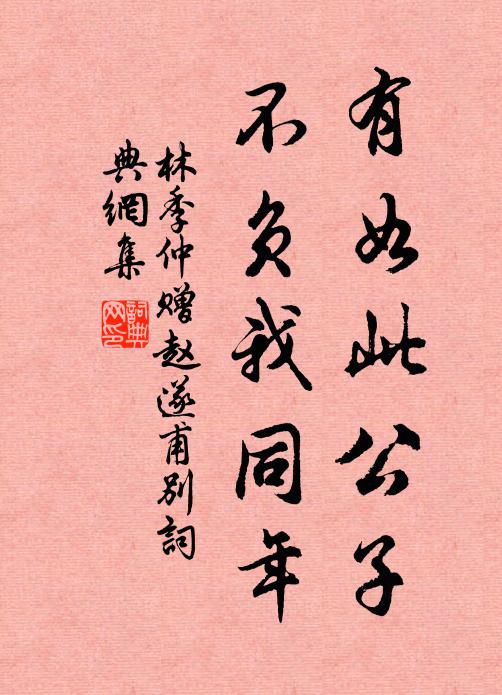 有如此公子
不负我同年
林季仲赠赵遂甫别词
典網集
詞典
网印